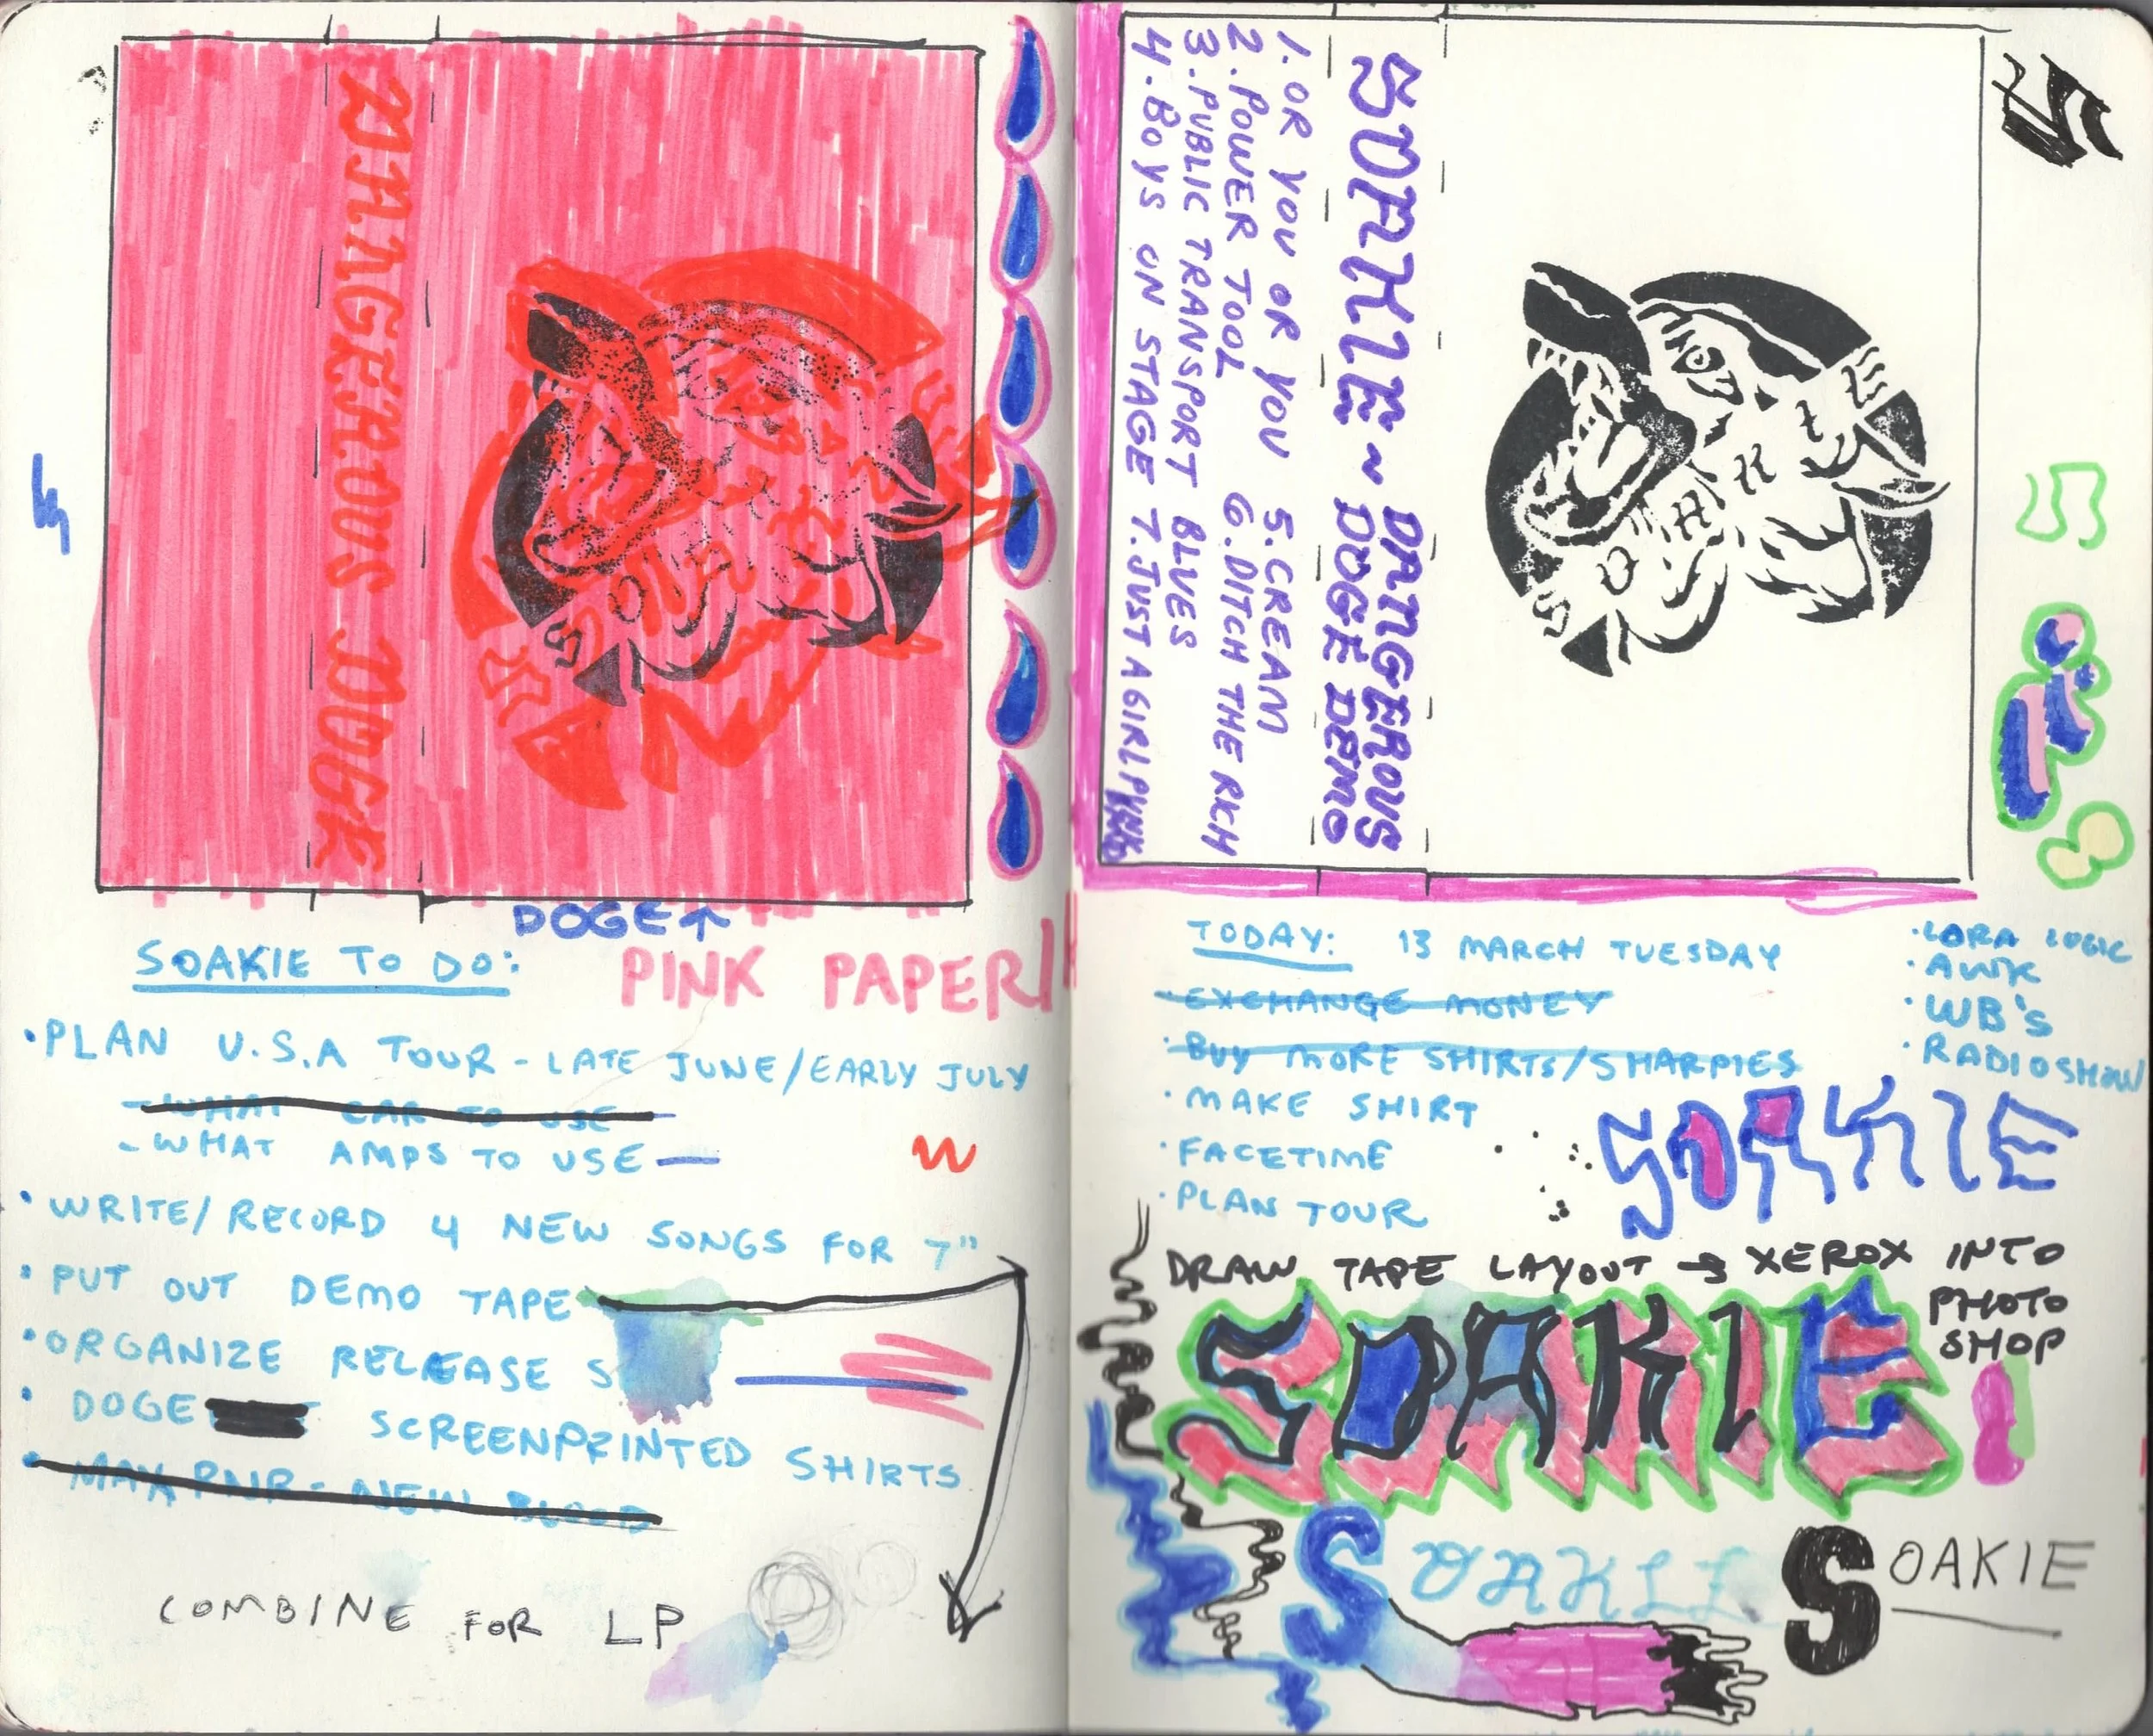 DANGEROUS DOGE
DOGE↑
SOAKIE TO DO:
PINK PAPER!
•PLAN U.S.A TOUR - LATE JUNE/EARLY JULY
-WHAT CAR TO USE
-WHAT AMPS TO USE—
•WRITE/RECORD 4 NEW SONGS FOR 7"
•PUT OUT DEMO TAPE
•ORGANIZE RELEASE S
•DOGE SCREENPRINTED SHIRTS
•MAX RNR - NEW BLOOD
COMBINE FOR LP
SOAKIE ~ DANGEROUS
DOGE DEMO
1. OR YOU OR YOU 5. CREAM
2. POWER TOOL 6. DITCH THE RICH
3. PUBLIC TRANSPORT BLUES
4. BOYS ON STAGE 7. JUST A GIRL PUNK
S
S
TODAY: 13 MARCH TUESDAY
•EXCHANGE MONEY
•BUY MORE SHIRTS/SHARPIES
•MAKE SHIRT
•FACETIME
•PLAN TOUR
•LORA LOGIC
•AWK
•WB'S
•RADIOSHOW
SOAKIE
DRAW TAPE LAYOUT → XEROX INTO
PHOTO
SHOP
SOAKIE
SOAKIE
SOAKIE